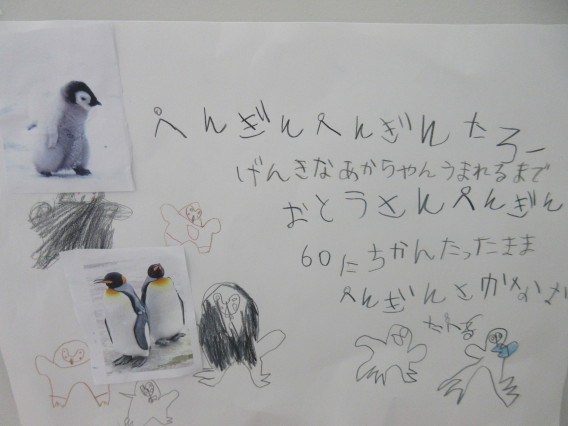 ぺんぎんぺんぎんたろー
げんきなあからゃんうまれるまで
おとうさんぺんぎん
60にちかんたったまま
ぺんぎんさかなさ